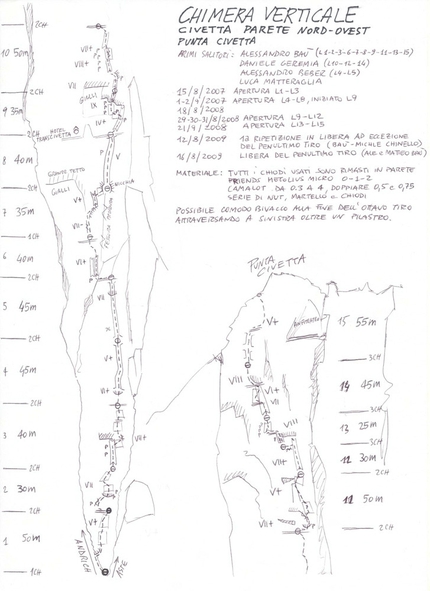 CHIMERA VERTICALE
CIVETTA PARETE NORD-OVEST
PUNTA CIVETTA
PRIMI SALITORI: ALESSANDRO BAÙ (L1-2-3-6-7-8-9-11-13-15)
DANIELE GEREMIA (L10-12-14)
ALESSANDRO BEBER (L4-L5)
LUCA MATTERAGLIA
15/8/2007 APERTURA L1-L3
1-2/9/2007 APERTURA L4-L8, INIZIATO L9
18/8/2008
29-30-31/8/2008 APERTURA L9-L12
21/9/2008 APERTURA L13-L15
12/8/2009 1a RIPETIZIONE IN LIBERA AD ECCEZIONE
DEL PENULTIMO TIRO (BAÙ-MICHELE CHINELLO)
16/8/2009 LIBERA DEL PENULTIMO TIRO (ALE e MATTEO BAÙ)
MATERIALE: TUTTI I CHIODI USATI SONO RIMASTI IN PARETE
FRIENDS METOLIUS MICRO 0-1-2
CAMALOT DA 0.3 A 4, DOPPIARE 0,5 e 0,75
SERIE DI NUT, MARTELLO e CHIODI
POSSIBILE COMODO BIVACCO ALLA FINE DELL'OTTAVO TIRO
ATTRAVERSANDO A SINISTRA OLTRE UN PILASTRO.
10 50m
VII+
VIII
VII
2CH
GIALLI
IX
9 35m
IV+
HOTEL
TRANSCIVETTA
2CH
P
V
8 40m
GIALLI
NICCHIA
2CH
7 35m
VII+
1CH
6 40m
VII+
2CH
VII
5 45m
IX
V+
2CH
4 45m
V+
VI
2CH
3 40m
VII+
VII
2CH
2 30m
VII
V+
2CH
1 50m
VI
V+
1CH
ANDRICH
ASTE
PUNTA
CIVETTA
V+
15 55m
3CH
VIII
VI+
14 45m
VII
3CH
VIII
13 25m
3CH
VII+
12 30m
2CH
V+
11 50m
VII+
2CH